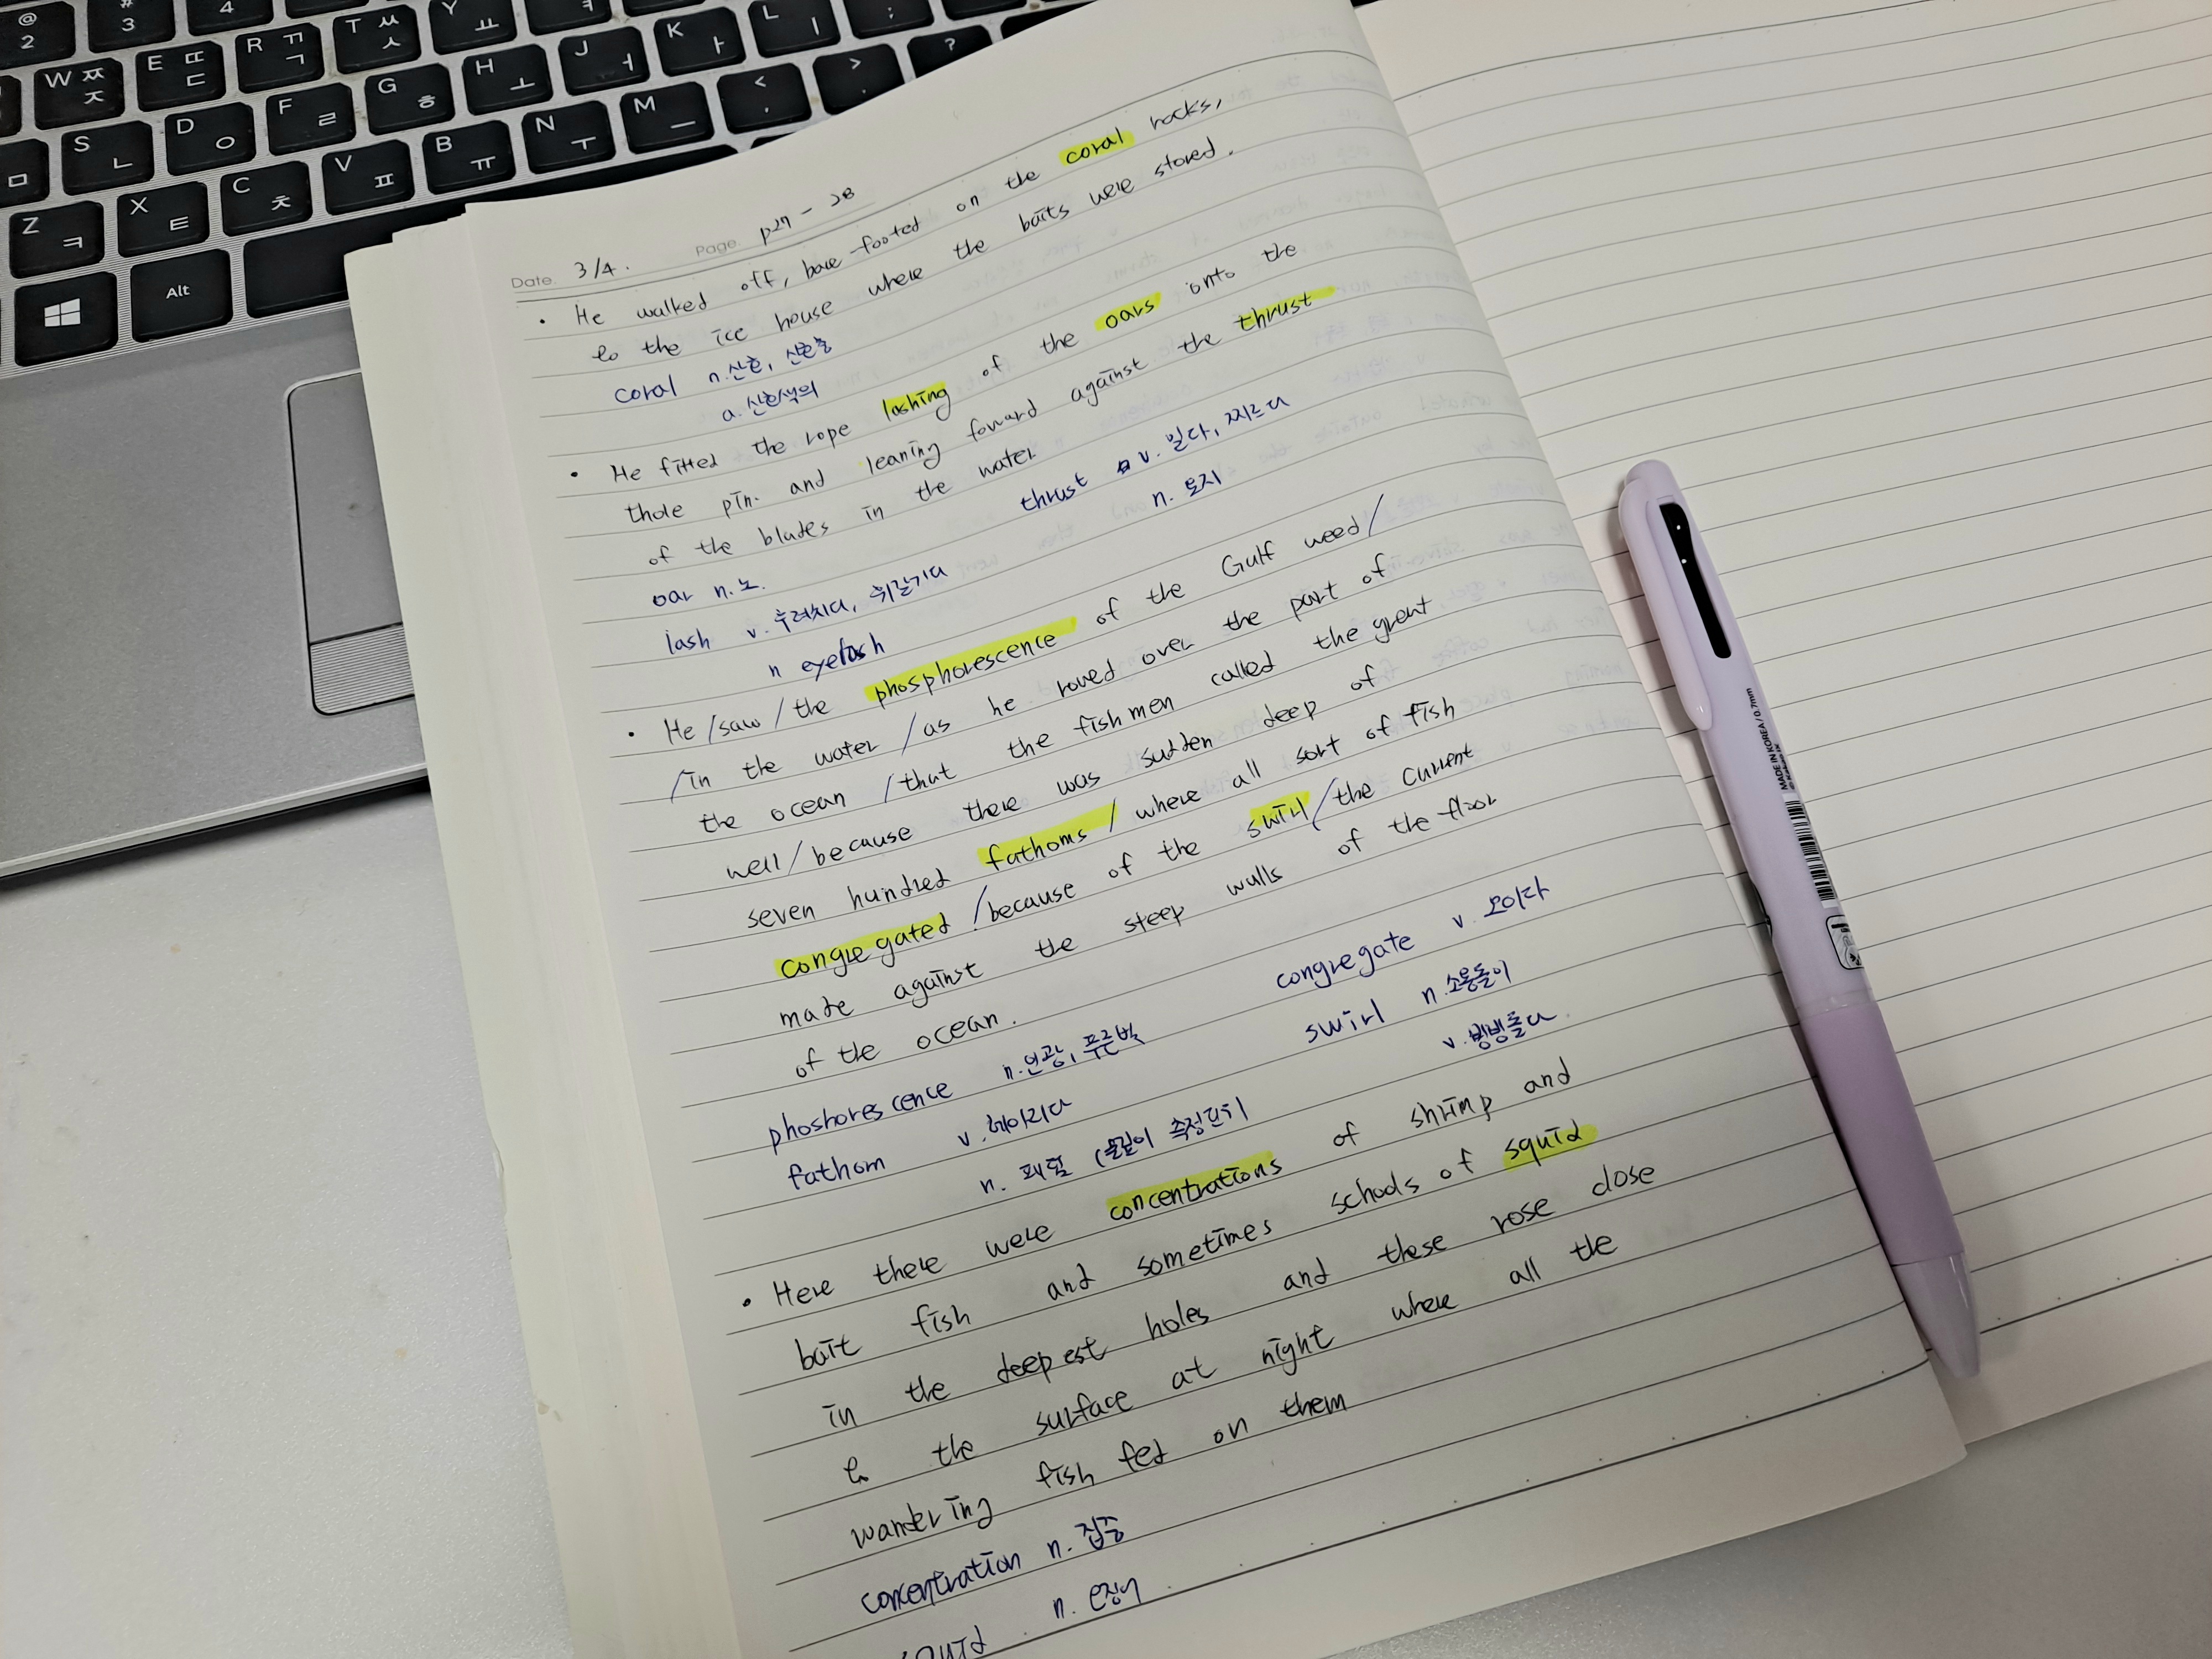 @ 2
# 3
$ 4
W ㅉ ㅈ
E ㄸ ㄷ
R ㄲ ㄱ
T ㅆ ㅅ
Y ㅛ
S ㄴ
D ㅇ
F ㄹ
G ㅎ
H ㅗ
J ㅓ
K ㅏ
L ㅣ
;
Z ㅋ
X ㅌ
C ㅊ
V ㅍ
B ㅠ
N ㅜ
M ㅡ
< ,
> .
?
ㅁ
Alt
Date. 3/4. Page. p27 - 28
• He walked off, bare-footed on the coral rocks,
to the ice house where the baits were stored.
coral n. 산호, 산호충
a. 산호색의
• He fitted the rope lashing of the oars onto the
thole pin. and leaning foward against the thrust
of the blades in the water
thrust v. 밀다, 찌르다
n. 요지
oar n. 노.
lash v. 후려치다, 휘갈기다
n eyelash
• He /saw /the phosphorescence of the Gulf weed/
/in the water /as he roved over the part of
the ocean /that the fishmen called the great
well/because there was sudden deep of
seven hundred fathoms / where all sort of fish
congregated /because of the swirl/the current
made against the steep walls of the floor
of the ocean.
congregate v. 모이다
phoshorescence n. 인광, 푸른빛
swirl n. 소용돌이
v. 빙빙돌다.
fathom v. 헤아리다
n. 패덤 (물깊이 측정단위
• Here there were concentrations of shrimp and
bait fish and sometimes schools of squid
in the deepest holes and these rose close
to the surface at night where all the
wandering fish fed on them
concentration n. 집중
squid n. 오징어
MADE IN KOREA / 0.7mm